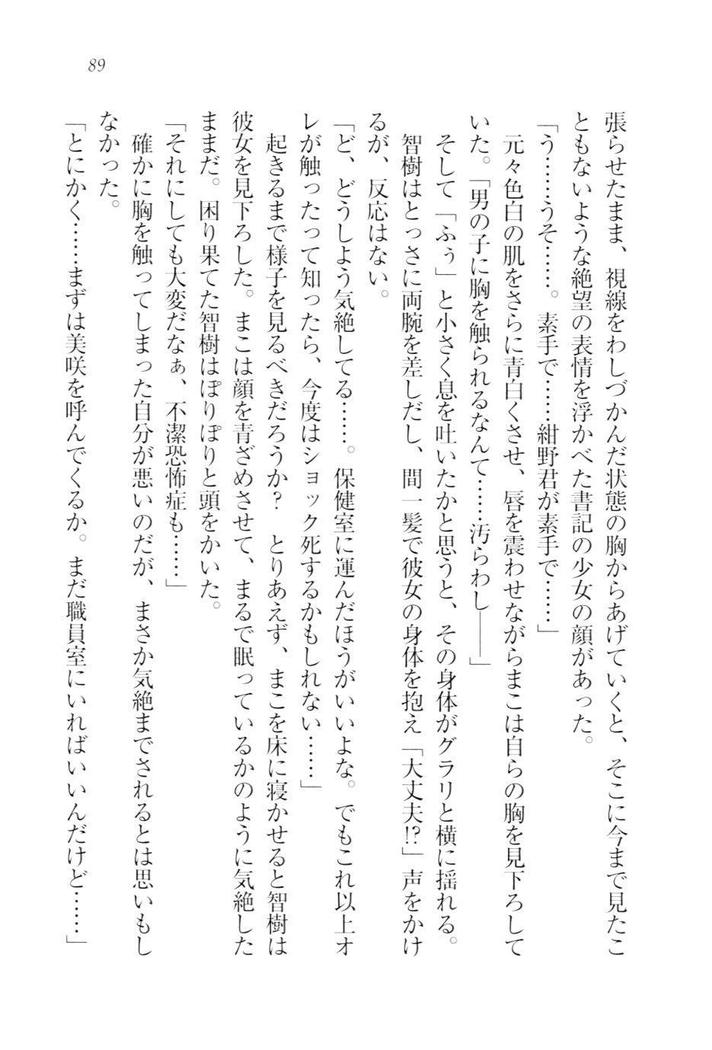 89
張らせたまま、視線をわしづかんだ状態の胸からあげていくと、そこに今まで見たこ
ともないような絶望の表情を浮かべた書記の少女の顔があった。
「う……うそ……。素手で……紺野君が素手で……」
元々色白の肌をさらに青白くさせ、唇を震わせながらまこは自らの胸を見下ろして
いた。「男の子に胸を触られるなんて……汚らわし――」
そして「ふぅ」と小さく息を吐いたかと思うと、その身体がグラリと横に揺れる。
智樹はとっさに両腕を差しだし、間一髪で彼女の身体を抱え「大丈夫!?」声をかけ
るが、反応はない。
「ど、どうしよう気絶してる……。保健室に運んだほうがいいよな。でもこれ以上オ
レが触ったって知ったら、今度はショック死するかもしれない……」
起きるまで様子を見るべきだろうか？　とりあえず、まこを床に寝かせると智樹は
彼女を見下ろした。まこは顔を青ざめさせて、まるで眠っているかのように気絶した
ままだ。困り果てた智樹はぽりぽりと頭をかいた。
「それにしても大変だなぁ、不潔恐怖症も……」
確かに胸を触ってしまった自分が悪いのだが、まさか気絶までされるとは思いもし
なかった。
「とにかく……まずは美咲を呼んでくるか。まだ職員室にいればいいんだけど……」